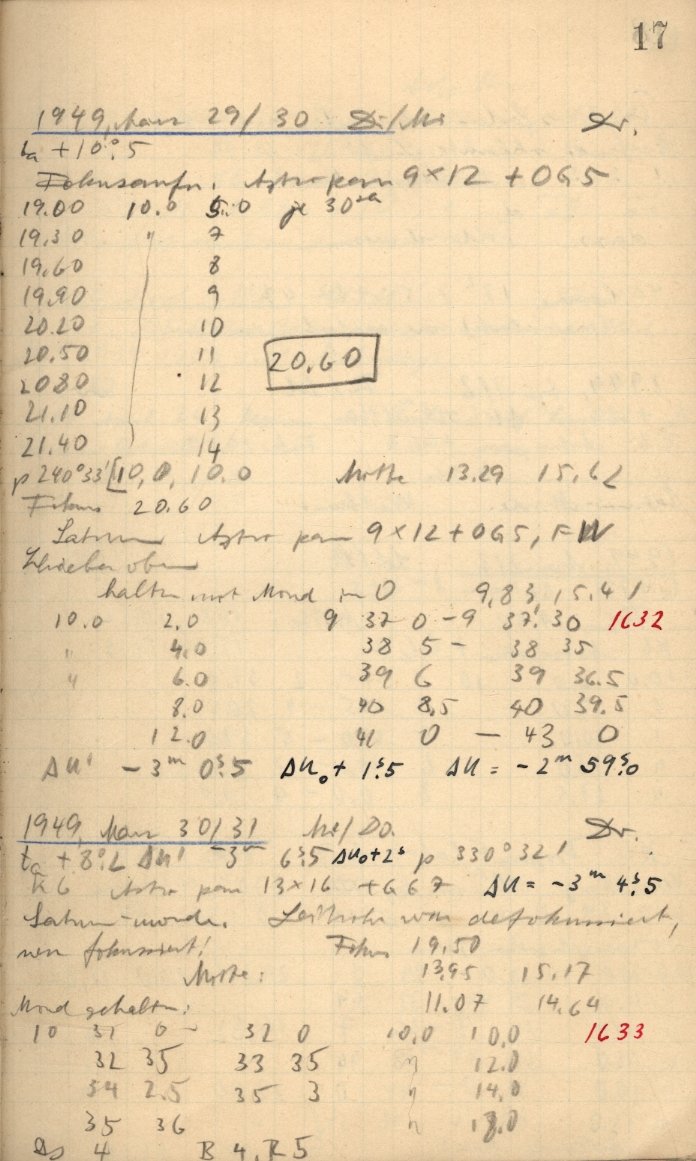 17
1949, März 29/30 Dr/Me Dr.
ta +10°.5
Fokusaufn. Astro pan 9×12 + OG5
19.00 10.0 5.0 je 30
19.30 " 7
19.60 8
19.90 9
20.20 10
20.50 11 20.60
20.80 12
21.10 13
21.40 14
p 240°33' 10,0, 10.0 Mitte 13.29 15.62
Fokus 20.60
Saturn Astro pan 9×12+OG5, F
Schieber oben
halten mit Mond in 0 9,83, 15.41
10.0 2.0 9 37 0 - 9 37. 30 1632
" 4.0 38 5 - 38 35
" 6.0 39 6 39 36.5
8.0 40 8,5 40 39.5
12.0 41 0 - 43 0
Δu' - 3m 0s.5 Δu0 + 1s.5 Δu = - 2m 59s.0
1949, März 30/31 Me/Do. Dr.
ta +8°.2 Δu' -3m 6s.5 Δu0+2s p 330°32'
K6 Astro pan 13×16 + GG7 Δu = -3m 4s.5
Saturnmonde. Leitrohr war defokussiert,
neu fokussiert! Fokus 19.50
Mitte: 13.95 15.17
Mond gehalten: 11.07 14.64
10 31 0 - 32 0 10,0 10,0 1633
32 35 33 35 " 12.0
34 2.5 35 3 " 14.0
35 36 " 18.0
4 B 4, R 5